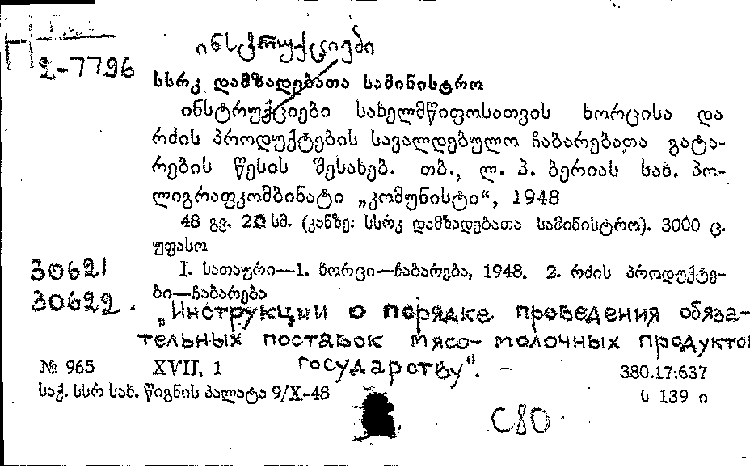 ინსტრუქციები
2-7796
სსრკ დამზადებათა სამინისტრო
ინსტრუქციები სახელმწიფოსათვის ხორცისა და
რძის პროდუქტების სავალდებულო ჩაბარებათა გატა-
რების წესის შესახებ. თბ., ლ. პ. ბერიას სახ. პო-
ლიგრაფკომბინატი „კომუნისტი“, 1948
48 გვ. 20 სმ. (კანზე: სსრკ დამზადებათა სამინისტრო). 3000 ც.
უფასო
30621
I. სათაური—1. ხორცი—ჩაბარება, 1948. 2. რძის პროდუქტე-
ბი—ჩაბარება
30622.
„Инструкции о порядке проведения обяза-
тельных поставок мясо-молочных продукто
государству". –
№ 965 XVII, 1 380.17:637
საქ. სსრ სახ. წიგნის პალატა 9/X-48 ს 139 ი
C80